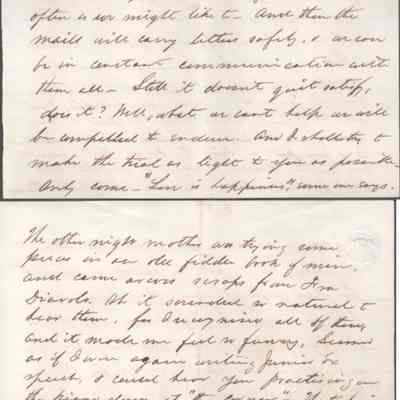 often as we might like to - And then the
mails will carry letters safely, & we can
be in constant communication with
them all - Still it doesn't quit satisfy,
does it? Well, what we can't help we will
be compelled to endure. And I shall try to
make the trial as light to you as possible -
Only come - "Love is happiness", some one says.
The other night mother was trying some
pieces in an old fiddle book of mine,
and came across scraps from Fra
Diavolo. It it sounded so natural to
hear them, for I recognized all of them,
and it made me feel so funny, seemed
as if I were again writing Junior Ex
speech, & could hear you practising on
the piano down at "the